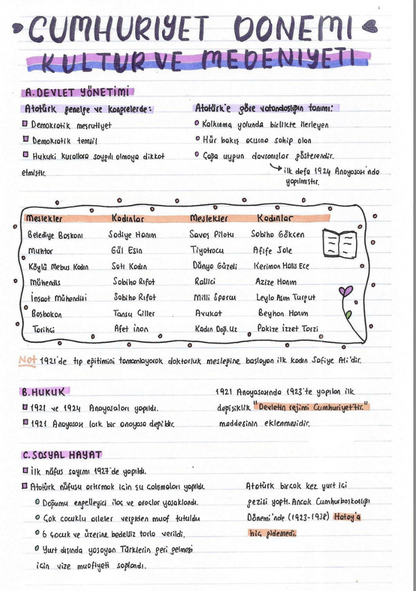 CUMHURİYET DÖNEMİ
KÜLTÜR VE MEDENİYETİ
A. DEVLET YÖNETİMİ
Atatürk genelge ve kongrelerde:
Demokratik meşruiyet
Demokratik temsil
Hukuki kurallara saygılı olmaya dikkat
etmiştir.
Atatürk'e göre vatandaşlığın tanımı:
Kalkınma yolunda birlikte ilerleyen
Hür bakış açısına sahip olan
Çağa uygun davranışlar gösterendir.
ilk defa 1924 Anayasası'nda
yapılmıştır.
Meslekler Kadınlar Meslekler Kadınlar
Belediye Başkanı Sadiye Hanım Savaş Pilotu Sabiha Gökçen
Muhtar Gül Esin Tiyatrocu Afife Jale
Köylü Mebus Kadın Satı Kadın Dünya Güzeli Keriman Halis Ece
Mühendis Sabiha Rıfat Rallici Azize Hanım
İnşaat Mühendisi Sabiha Rıfat Milli Sporcu Leyla Asım Turgut
Başbakan Tansu Çiller Avukat Beyhan Hanım
Tarihçi Afet İnan Kadın Doğ. Uz. Pakize İzzet Tarzi
Not 1921'de tıp eğitimini tamamlayarak doktorluk mesleğine başlayan ilk kadın Safiye Ali'dir.
B. HUKUK
1921 ve 1924 Anayasaları yapıldı.
1921 Anayasası laik bir anayasa değildir.
1921 Anayasasında 1923'te yapılan ilk
değişiklik "Devletin rejimi Cumhuriyet'tir."
maddesinin eklenmesidir.
C. SOSYAL HAYAT
İlk nüfus sayımı 1927'de yapıldı.
Atatürk nüfusu artırmak için şu çalışmaları yapıldı.
Doğumu engelleyici ilaç ve araçlar yasaklandı.
Çok çocuklu aileler vergiden muaf tutuldu
6 çocuk ve üzerine bedelsiz tarla verildi.
Yurt dışında yaşayan Türklerin geri gelmesi
için vize muafiyeti sağlandı.
Atatürk birçok kez yurt içi
gezisi yaptı. Ancak Cumhurbaşkanlığı
Dönemi'nde (1923-1938) Hatay'a
hiç gidemedi.